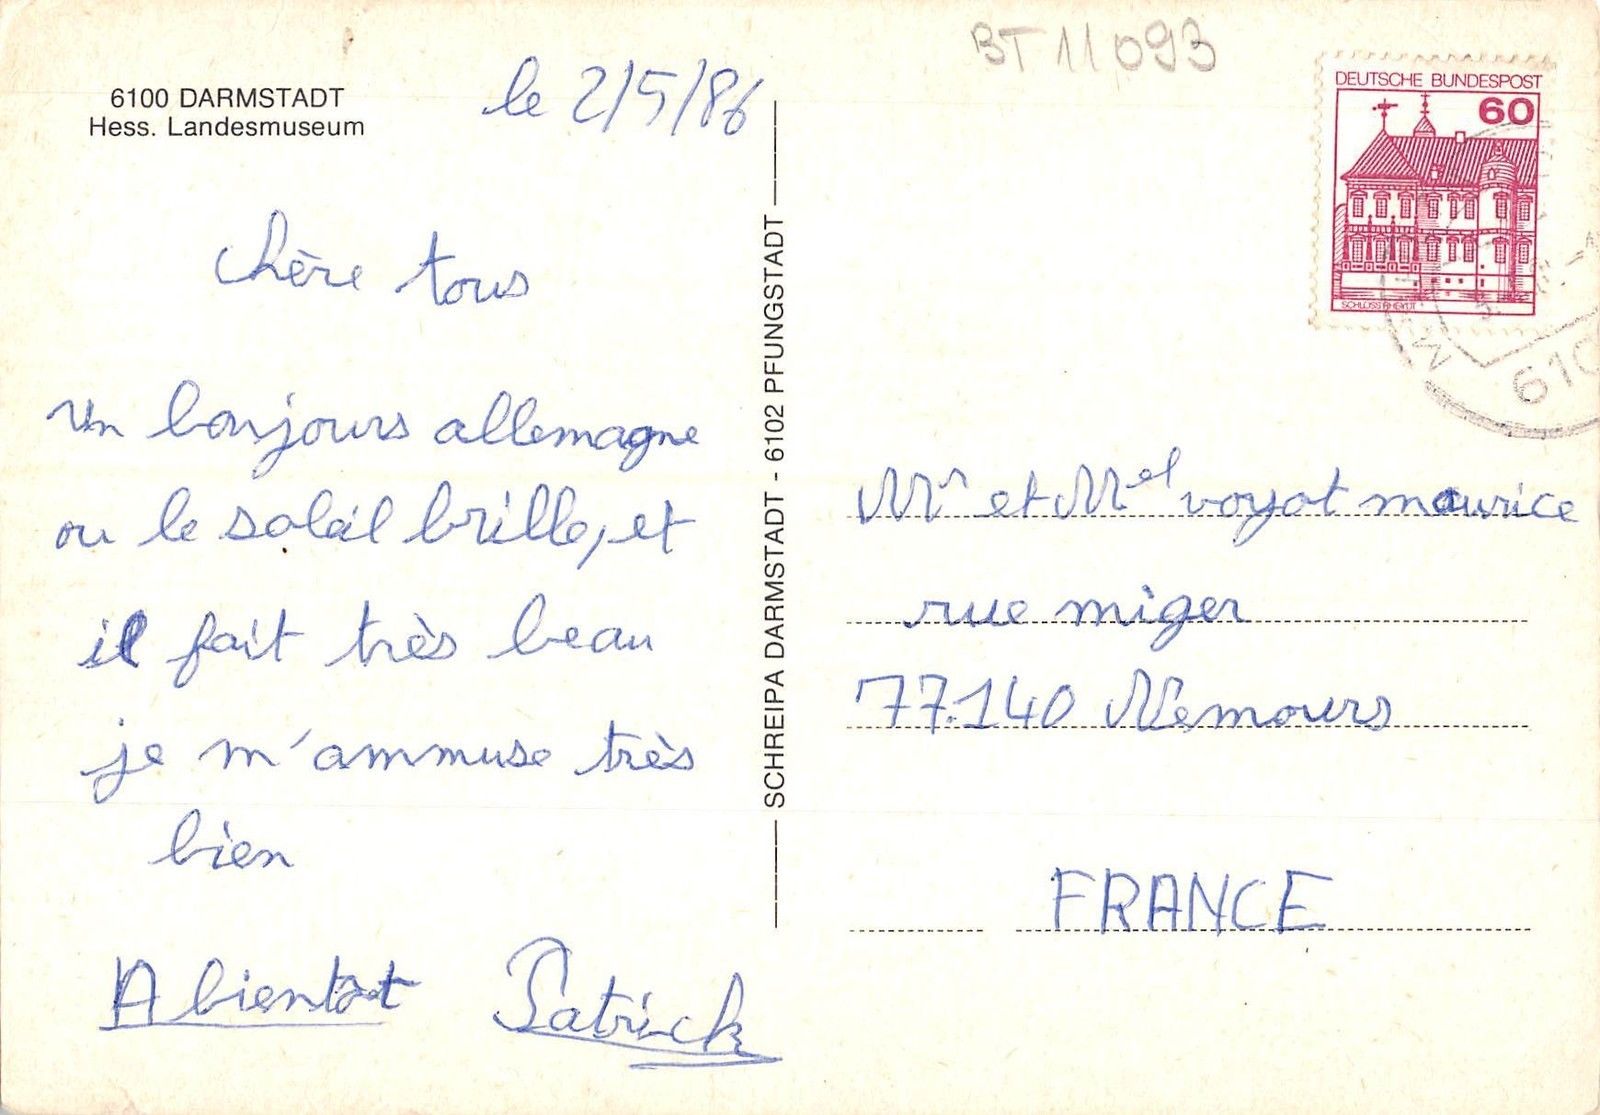 BT 11093
6100 DARMSTADT
Hess. Landesmuseum
le 2/5/86
chère tous
un bonjours allemagne
ou le soleil brille, et
il fait très beau
je m'ammuse très
bien
A bientot Patrick
SCHREIPA DARMSTADT - 6102 PFUNGSTADT
DEUTSCHE BUNDESPOST
60
SCHLOSS RHEYDT
610
Mr et Mel voyot maurice
rue miger
77.140 Nemours
FRANCE